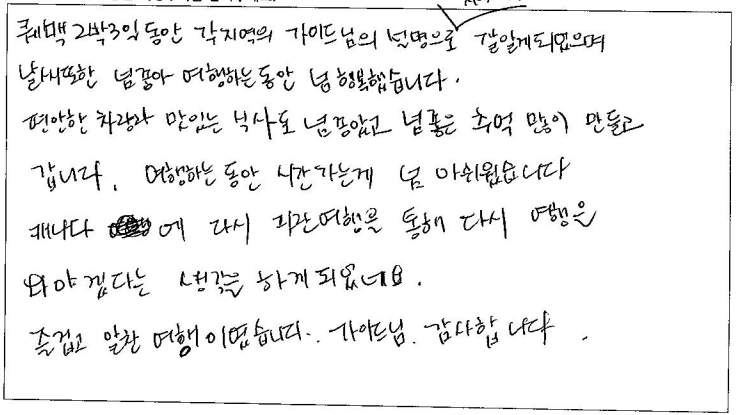 퀘백 2박3일 동안 각지역의 가이드님의 설명으로 잘알게되었으며
날씨또한 넘좋아 여행하는동안 넘행복했습니다.
편안한 차량과 맛있는 식사도 넘좋았고 넘좋은 추억 많이 만들고
갑니다. 여행하는동안 시간가는게 넘 아쉬웠습니다
캐나다 에 다시 여행을 통해 다시 여행을
와야겠다는 생각을 하게되었네요.
즐겁고 알찬 여행이였습니다.. 가이드님. 감사합니다.